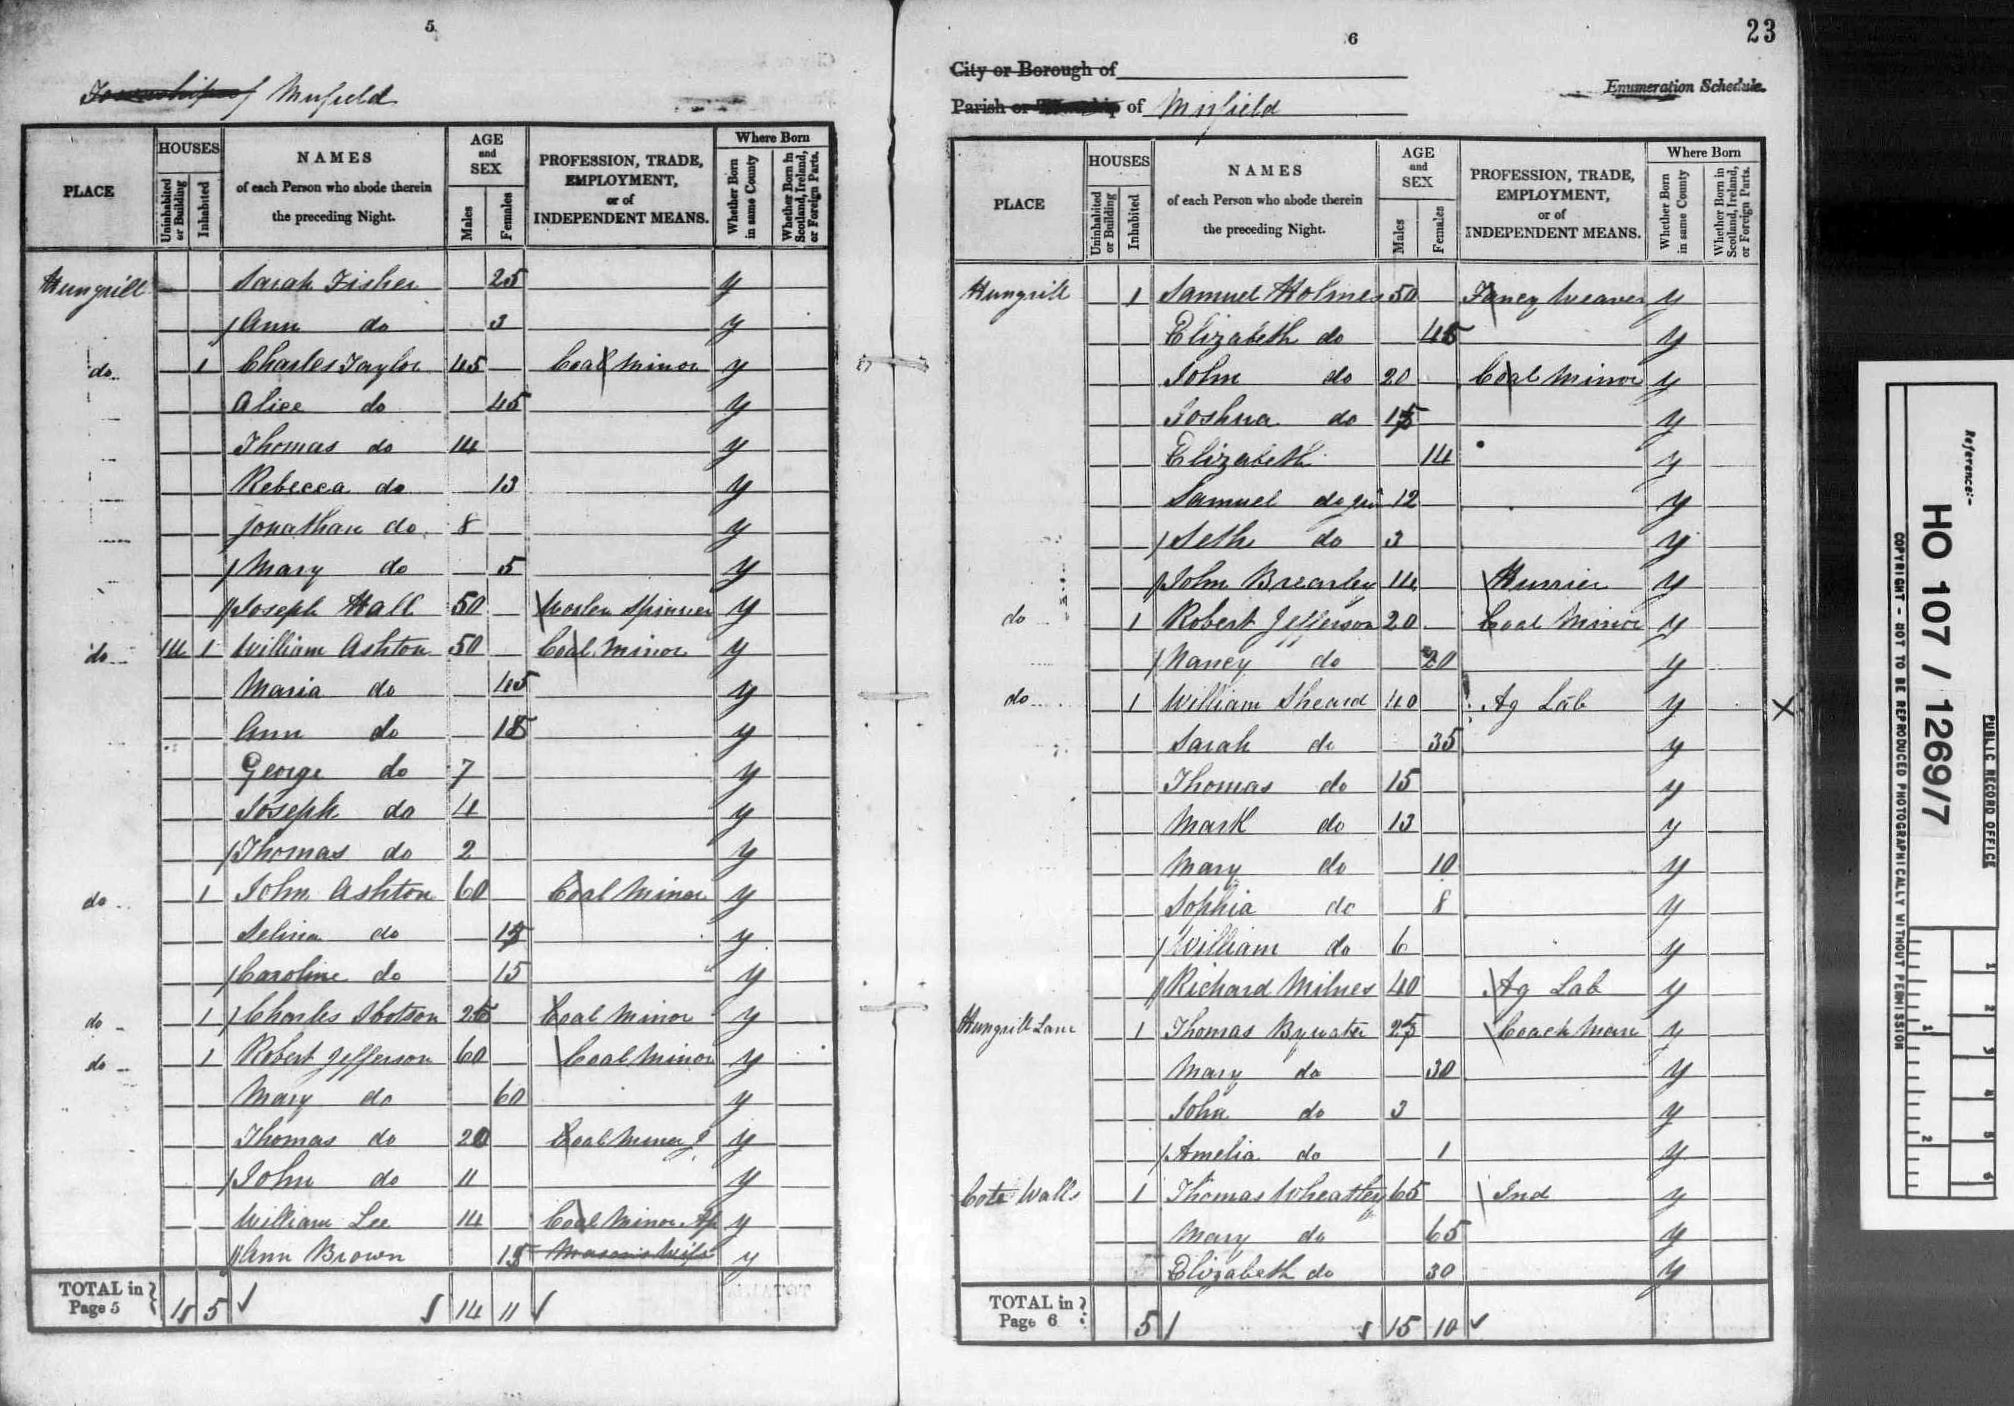 5
Township of Mirfield
PLACE
HOUSES
Uninhabited or Building
Inhabited
NAMES
of each Person who abode therein
the preceding Night.
AGE
and
SEX
Males
Females
PROFESSION, TRADE,
EMPLOYMENT,
or of
INDEPENDENT MEANS.
Where Born
Whether Born in same County
Whether Born in Scotland, Ireland, or Foreign Parts.
Hungrill Sarah Fisher 25 y
Ann do 3 y
do 1 Charles Taylor 45 Coal Minor y
Alice do 45 y
Thomas do 14 y
Rebecca do 13 y
Jonathan do 8 y
Mary do 5 y
Joseph Hall 50 Woolen Spinner y
do 1 William Ashton 50 Coal Minor y
Maria do 45 y
Ann do 15 y
George do 7 y
Joseph do 4 y
Thomas do 2 y
do 1 John Ashton 60 Coal Minor y
Selina do 15 y
Caroline do 15 y
do 1 Charles Ibotson 25 Coal Minor y
do 1 Robert Jefferson 60 Coal Minor y
Mary do 60 y
Thomas do 20 Coal Minor J y
John do 11 y
William Lee 14 Coal Minor Ap y
Ann Brown 15 Masons Wife y
TOTAL in
Page 5 5 14 11
6
23
City or Borough of
Enumeration Schedule.
Parish or Township of Mirfield
PLACE
HOUSES
Uninhabited or Building
Inhabited
NAMES
of each Person who abode therein
the preceding Night.
AGE
and
SEX
Males
Females
PROFESSION, TRADE,
EMPLOYMENT,
or of
INDEPENDENT MEANS.
Where Born
Whether Born in same County
Whether Born in Scotland, Ireland, or Foreign Parts.
Hungrill 1 Samuel Holmes 50 Fancy Weaver y
Elizabeth do 45 y
John do 20 Coal Minor y
Joshua do 15 y
Elizabeth 14 y
Samuel do jun 12 y
Seth do 3 y
John Brearley 14 Hurrier y
do 1 Robert Jefferson 20 Coal Minor y
Nancy do 20 y
do 1 William Sheard 40 Ag Lab y
Sarah do 35 y
Thomas do 15 y
Mark do 13 y
Mary do 10 y
Sophia do 8 y
William do 6 y
Richard Milnes 40 Ag Lab y
Hungrill Lane 1 Thomas Bywater 25 Coach Man y
Mary do 30 y
John do 3 y
Amelia do 1 y
Cote Walls 1 Thomas Wheatley 65 Ind y
Mary do 65 y
Elizabeth do 30 y
TOTAL in
Page 6 5 15 10
Reference:-
HO 107 / 1269/7
PUBLIC RECORD OFFICE
COPYRIGHT - NOT TO BE REPRODUCED PHOTOGRAPHICALLY WITHOUT PERMISSION
1
2
1
2
3
4
5
6